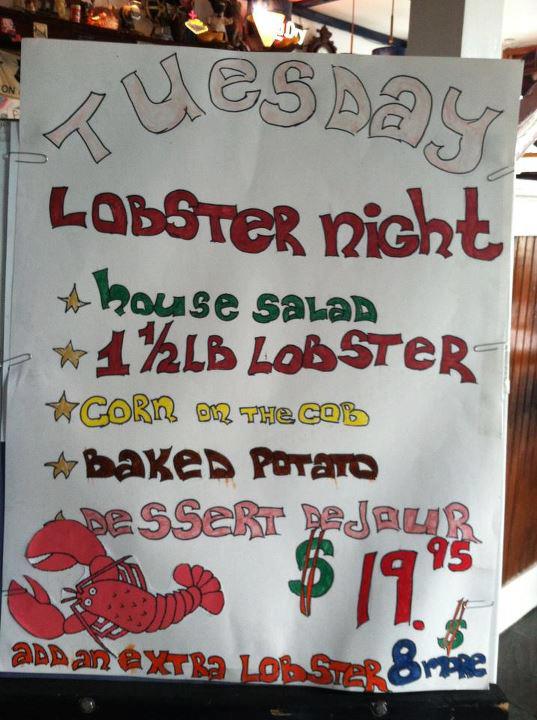 Tuesday
LOBSTER night
house SALAD
1 1/2 LB LOBSTER
CORN ON THE COB
BAKED POTATO
DESSERT DE JOUR
$19.95
ADD an EXTRA LOBSTER $8 more